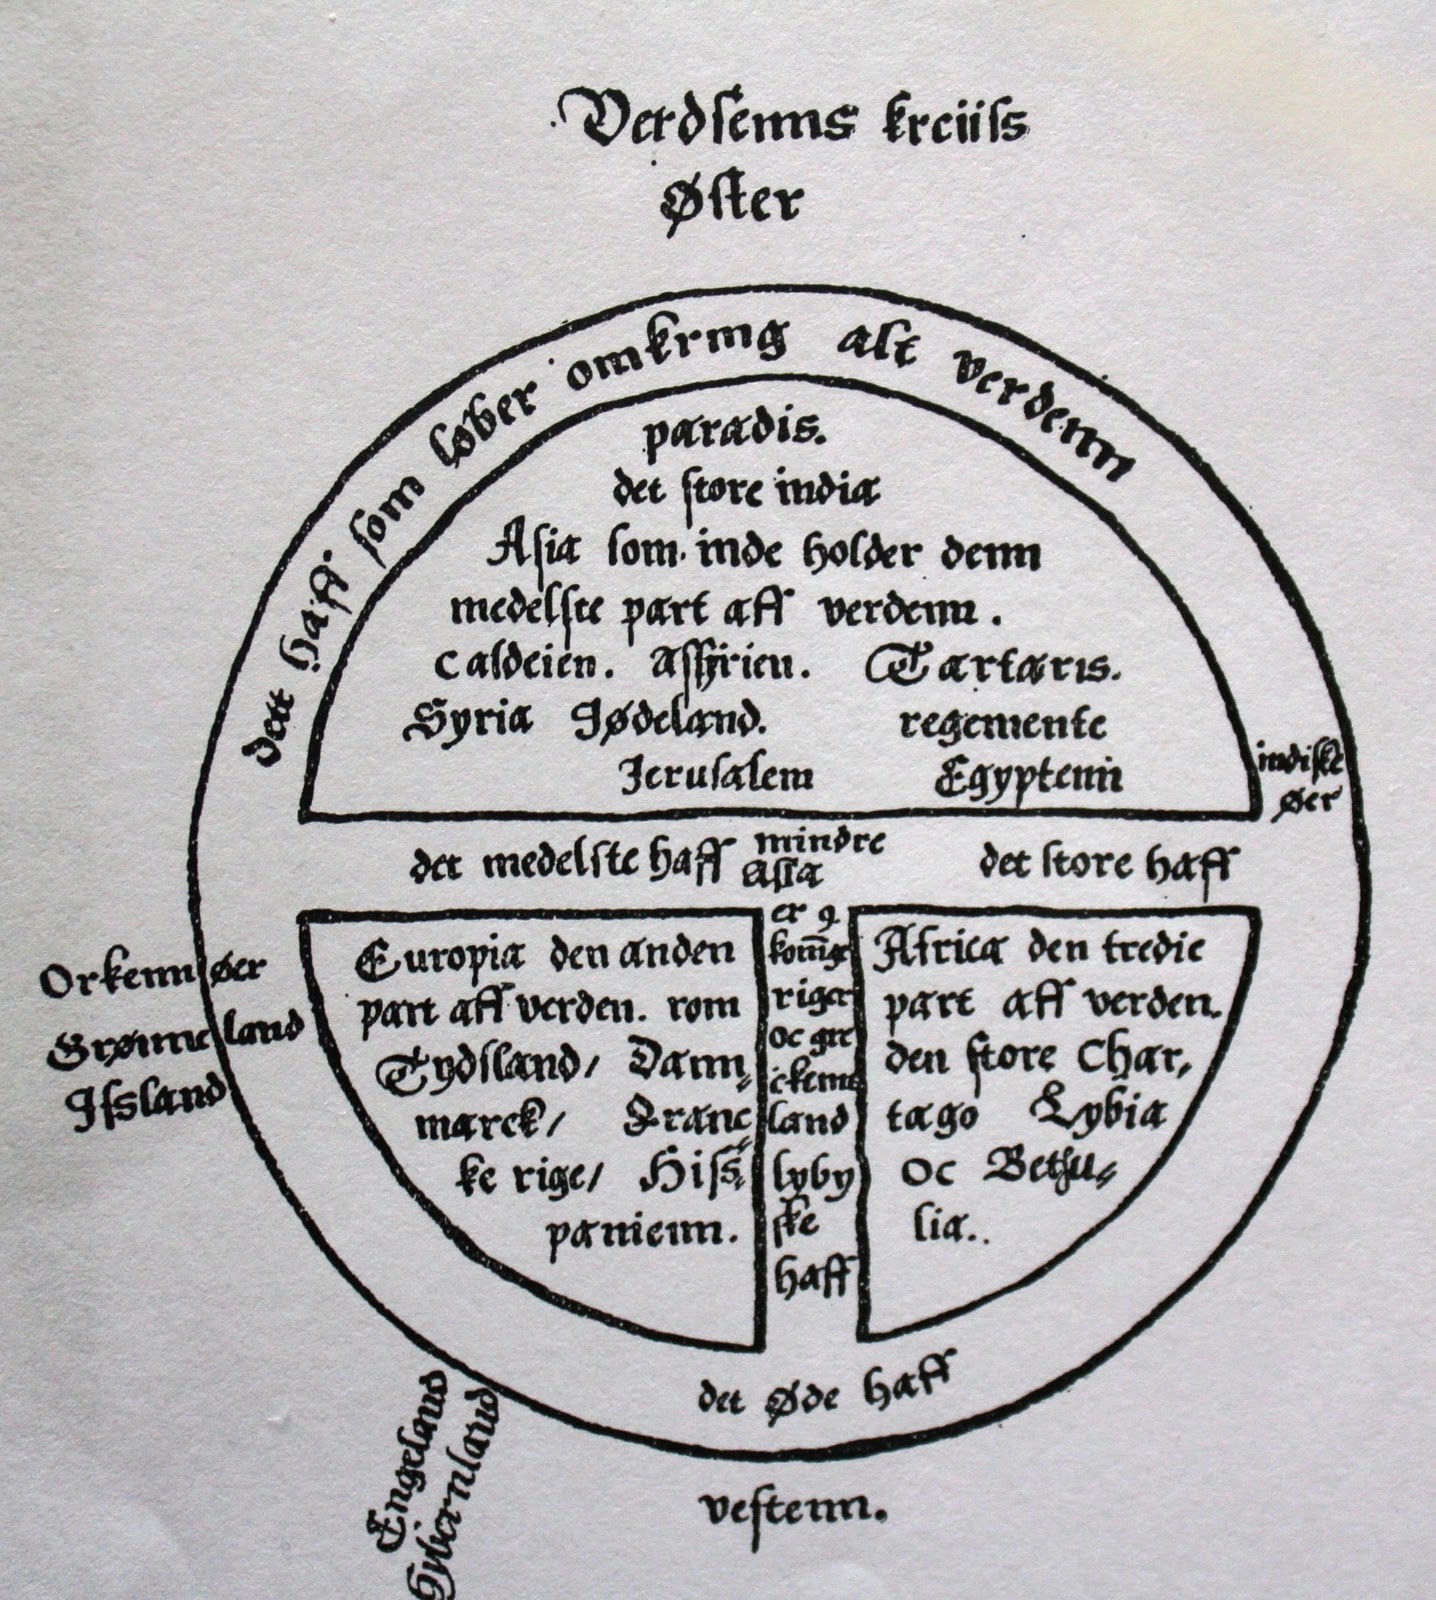 Verdsenns kreiiss
Øster
dett haff som løber omkring alt verdenn
paradis.
det store india
Asia som inde holder denn
medelste part aff verdenn.
Caldeien. Assyrien. Tartaris.
Syria Jødeland. regemente
Jerusalem Egyptenn
indiske
øer
det medelste haff
mindre
Asia
det store haff
er 9.
konnge
riger
oc gre
ckenn
land
lyby
ske
haff
Orkenn øer
Grønne land
Jssland
Europia den anden
part aff verden. rom
Tydsland/ Dann⸗
marck/ Franc⸗
ke rige/ Hiss⸗
panienn.
Africa den tredie
part aff verden.
den store Char,
tago Lybia
oc Bethu⸗
lia..
det Øde haff
Engeland
Hybernland
vestenn.